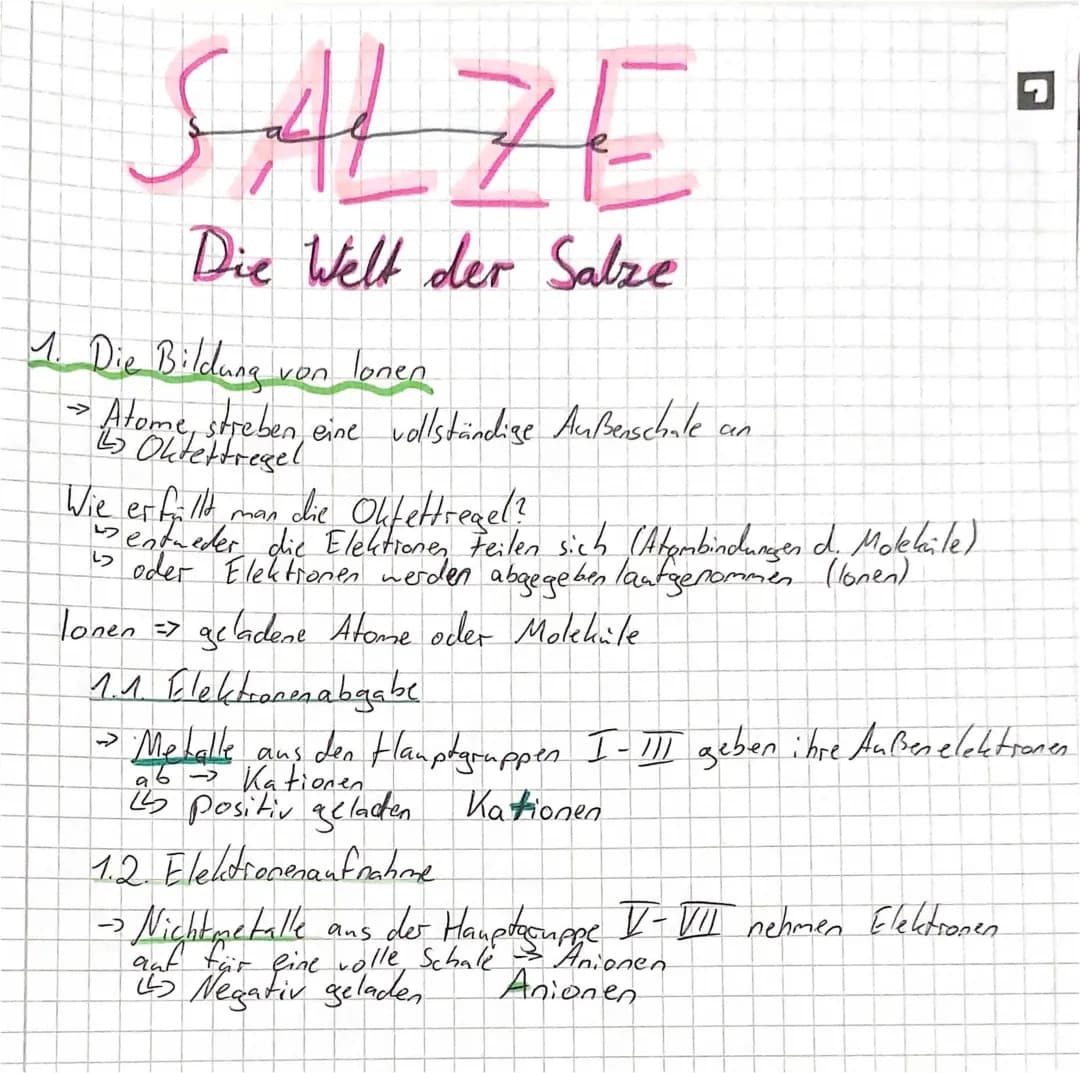 SALZE
Salze
Die Welt der Salze
1. Die Bildung von Ionen
→ Atome streben eine vollständige Außenschale an
↳ Oktettregel
Wie erfüllt man die Oktettregel?
↳ entweder die Elektronen teilen sich (Atombindungen d. Moleküle)
↳ oder Elektronen werden abgegeben/aufgenommen (Ionen)
Ionen => geladene Atome oder Moleküle
1.1. Elektronenabgabe
→ Metalle aus den Hauptgruppen I-III geben ihre Außenelektronen
ab → Kationen
↳ positiv geladen Kationen
1.2. Elektronenaufnahme
→ Nichtmetalle aus der Hauptgruppe V-VII nehmen Elektronen
auf für eine volle Schale → Anionen
↳ Negativ geladen Anionen